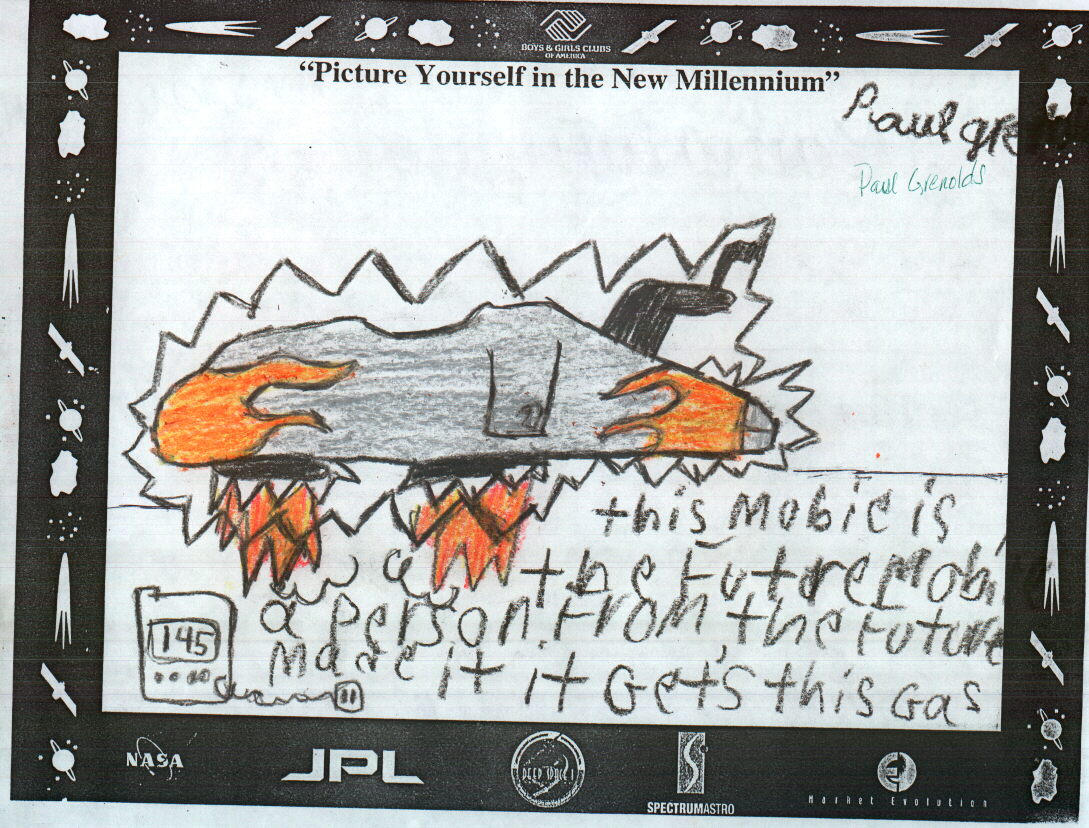 BOYS & GIRLS CLUBS
OF AMERICA
“Picture Yourself in the New Millennium”
Paul gre
Paul Grenolds
this Mobie is
the future Mobi
a person from the future
made it it Gets this Gas
145
NASA
JPL
DEEP SPACE 1
SPECTRUMASTRO
Market Evolution